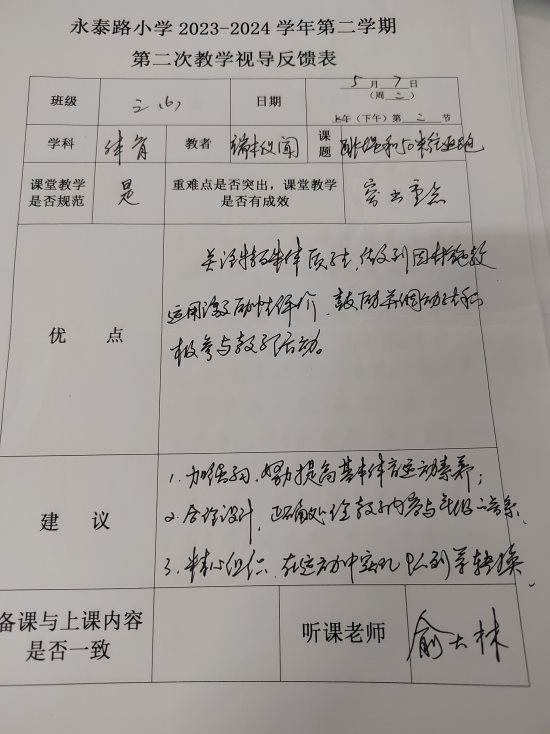 永泰路小学 2023-2024 学年第二学期
第二次教学视导反馈表
班级 三(6) 日期 5月7日
(周二)
上午(下午)第二节
学科 体育 教者 课题 跳绳和50米往返跑
课堂教学是否规范 是 重难点是否突出,课堂教学是否有成效 突出重点
优点
关注特异体质学生,做到因材施教
运用激励性评价,鼓励并调动学生积
极参与教学活动。
建议
1.加强学习,努力提高基本体育运动素养;
2.合理设计,正确处理教学内容与年级
3.精心组织,在运动中实现队列等转换
备课与上课内容
是否一致 听课老师 俞大林